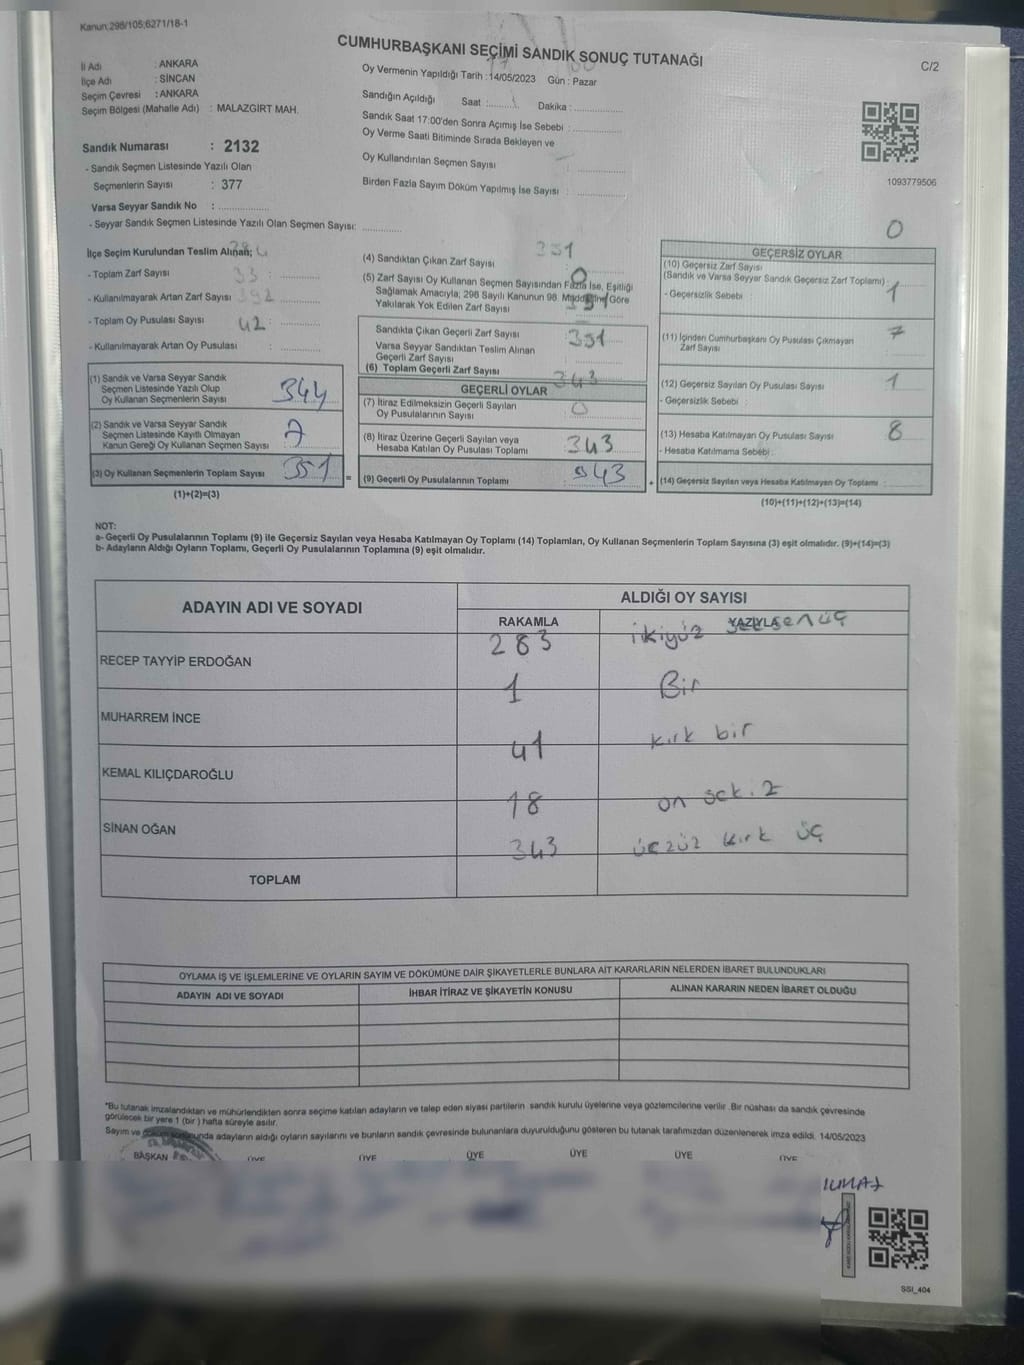 Kanun:298/105;6271/18-1
CUMHURBAŞKANI SEÇİMİ SANDIK SONUÇ TUTANAĞI
C/2
İl Adı : ANKARA
İlçe Adı : SİNCAN
Seçim Çevresi : ANKARA
Seçim Bölgesi (Mahalle Adı) : MALAZGİRT MAH.
Oy Vermenin Yapıldığı Tarih :14/05/2023 Gün : Pazar
Sandığın Açıldığı Saat :............ Dakika :............
Sandık Saat 17:00'den Sonra Açımış İse Sebebi :............
Oy Verme Saati Bitiminde Sırada Bekleyen ve
Oy Kullandırılan Seçmen Sayısı :............
Birden Fazla Sayım Döküm Yapılmış İse Sayısı :............
1093779506
Sandık Numarası : 2132
- Sandık Seçmen Listesinde Yazılı Olan
Seçmenlerin Sayısı : 377
Varsa Seyyar Sandık No :............
- Seyyar Sandık Seçmen Listesinde Yazılı Olan Seçmen Sayısı:............
İlçe Seçim Kurulundan Teslim Alınan;
- Toplam Zarf Sayısı 33
- Kullanılmayarak Artan Zarf Sayısı
- Toplam Oy Pusulası Sayısı 42
- Kullanılmayarak Artan Oy Pusulası
(1) Sandık ve Varsa Seyyar Sandık
Seçmen Listesinde Yazılı Olup
Oy Kullanan Seçmenlerin Sayısı 344
(2) Sandık ve Varsa Seyyar Sandık
Seçmen Listesinde Kayıtlı Olmayan
Kanun Gereği Oy Kullanan Seçmen Sayısı 7
(3) Oy Kullanan Seçmenlerin Toplam Sayısı 351
(1)+(2)=(3)
351
(4) Sandıktan Çıkan Zarf Sayısı
0
(5) Zarf Sayısı Oy Kullanan Seçmen Sayısından Fazla İse, Eşitliği
Sağlamak Amacıyla; 298 Sayılı Kanunun 98. Maddesine Göre
Yakılarak Yok Edilen Zarf Sayısı 351
Sandıkta Çıkan Geçerli Zarf Sayısı 351
Varsa Seyyar Sandıktan Teslim Alınan
Geçerli Zarf Sayısı
(6) Toplam Geçerli Zarf Sayısı 343
GEÇERLİ OYLAR
(7) İtiraz Edilmeksizin Geçerli Sayılan
Oy Pusulalarının Sayısı 0
(8) İtiraz Üzerine Geçerli Sayılan veya
Hesaba Katılan Oy Pusulası Toplamı 343
= (9) Geçerli Oy Pusulalarının Toplamı 343
0
GEÇERSİZ OYLAR
(10) Geçersiz Zarf Sayısı
(Sandık ve Varsa Seyyar Sandık Geçersiz Zarf Toplamı)
- Geçersizlik Sebebi : 1
(11) İçinden Cumhurbaşkanı Oy Pusulası Çıkmayan
Zarf Sayısı 7
(12) Geçersiz Sayılan Oy Pusulası Sayısı 1
- Geçersizlik Sebebi :
(13) Hesaba Katılmayan Oy Pusulası Sayısı 8
- Hesaba Katılmama Sebebi :
+ (14) Geçersiz Sayılan veya Hesaba Katılmayan Oy Toplamı :
(10)+(11)+(12)+(13)=(14)
NOT:
a- Geçerli Oy Pusulalarının Toplamı (9) ile Geçersiz Sayılan veya Hesaba Katılmayan Oy Toplamı (14) Toplamları, Oy Kullanan Seçmenlerin Toplam Sayısına (3) eşit olmalıdır. (9)+(14)=(3)
b- Adayların Aldığı Oyların Toplamı, Geçerli Oy Pusulalarının Toplamına (9) eşit olmalıdır.
ADAYIN ADI VE SOYADI
ALDIĞI OY SAYISI
RAKAMLA YAZIYLA
283 ikiyüz seksenüç
RECEP TAYYİP ERDOĞAN
1 Bir
MUHARREM İNCE
41 kırk bir
KEMAL KILIÇDAROĞLU
18 on sekiz
SİNAN OĞAN
343 üçyüz kırk üç
TOPLAM
OYLAMA İŞ VE İŞLEMLERİNE VE OYLARIN SAYIM VE DÖKÜMÜNE DAİR ŞİKAYETLERLE BUNLARA AİT KARARLARIN NELERDEN İBARET BULUNDUKLARI
ADAYIN ADI VE SOYADI İHBAR İTİRAZ VE ŞİKAYETİN KONUSU ALINAN KARARIN NEDEN İBARET OLDUĞU
*Bu tutanak imzalandıktan ve mühürlendikten sonra seçime katılan adayların ve talep eden siyasi partilerin sandık kurulu üyelerine veya gözlemcilerine verilir. Bir nüshası da sandık çevresinde
görülecek bir yere 1 (bir) hafta süreyle asılır.
Sayım ve döküm sonunda adayların aldığı oyların sayılarını ve bunların sandık çevresinde bulunanlara duyurulduğunu gösteren bu tutanak tarafımızdan düzenlenerek imza edildi. 14/05/2023
BAŞKAN ÜYE ÜYE ÜYE ÜYE ÜYE ÜYE
SSI_404